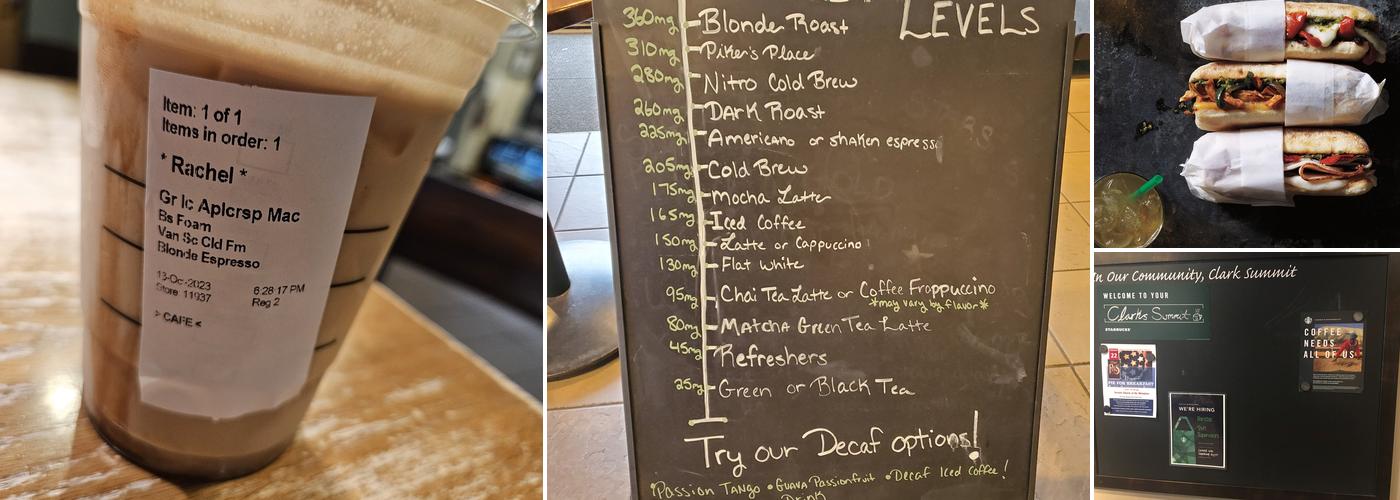 Item: 1 of 1
Items in order: 1
* Rachel *
Gr Ic Aplcrsp Mac
Bs Foam
Van Sc Cld Fm
Blonde Espresso
13-Oct-2023 6:28:17 PM
Store: 11937 Reg 2
> CAFE <
LEVELS
360mg Blonde Roast
310mg Piker's Place
280mg Nitro Cold Brew
260mg Dark Roast
225mg Americano or shaken espresso
205mg Cold Brew
175mg Mocha Latte
165mg Iced Coffee
150mg Latte or Cappuccino
130mg Flat White
95mg Chai Tea Latte or Coffee Frappuccino
*may vary by flavor*
80mg Matcha Green Tea Latte
45mg Refreshers
25mg Green or Black Tea
Try our Decaf options!
•Passion Tango •Guava Passionfruit •Decaf Iced Coffee!
Drink
In Our Community, Clark Summit
WELCOME TO YOUR
Clarks Summit
STARBUCKS
COFFEE
NEEDS
ALL OF US
22
PIE FOR BREAKFAST
WE'RE HIRING